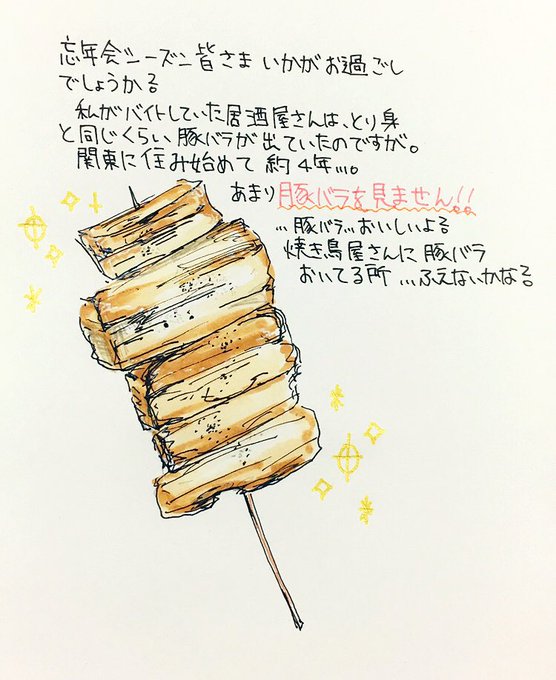 忘年会シーズン皆さまいかがお過ごし
でしょうか。
私がバイトしていた居酒屋さんは、とり身
と同じくらい豚バラが出ていたのですが。
関東に住み始めて約4年...。
あまり豚バラを見ません!!
...豚バラ...おいしいよ。
焼き鳥屋さんに豚バラ
おいてる所...ふえないかな。